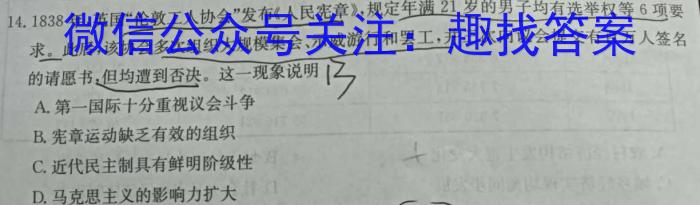 14. 1838年,英国“伦敦工人协会”发布《人民宪章》,规定年满21岁的男子均有选举权等6项要
求。此后,该协会多次组织大规模集会、示威游行和罢工,并
万人签名
的请愿书,但均遭到否决。这一现象说明
A. 第一国际十分重视议会斗争
B. 宪章运动缺乏有效的组织
C. 近代民主制具有鲜明阶级性
D. 马克思主义的影响力扩大
微信公众号关注:趣找答案